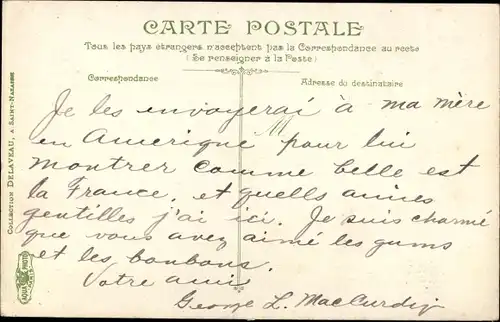 CARTE POSTALE
Tous les pays étrangers n'acceptent pas la Correspondance au recto
(Se renseigner à la Poste)
Correspondance
Adresse du destinataire
COLLECTION DELAVEAU, A SAINT-NAZAIRE
Je les envoyerai à ma mère
en Amerique pour lui
montrer comme belle est
la France, et quells amies
gentilles j'ai ici. Je suis charmé
que vous avez aimé les gums
et les bonbons.
Votre ami
George L. MacCurdy
AQUA PHOTO
PARIS